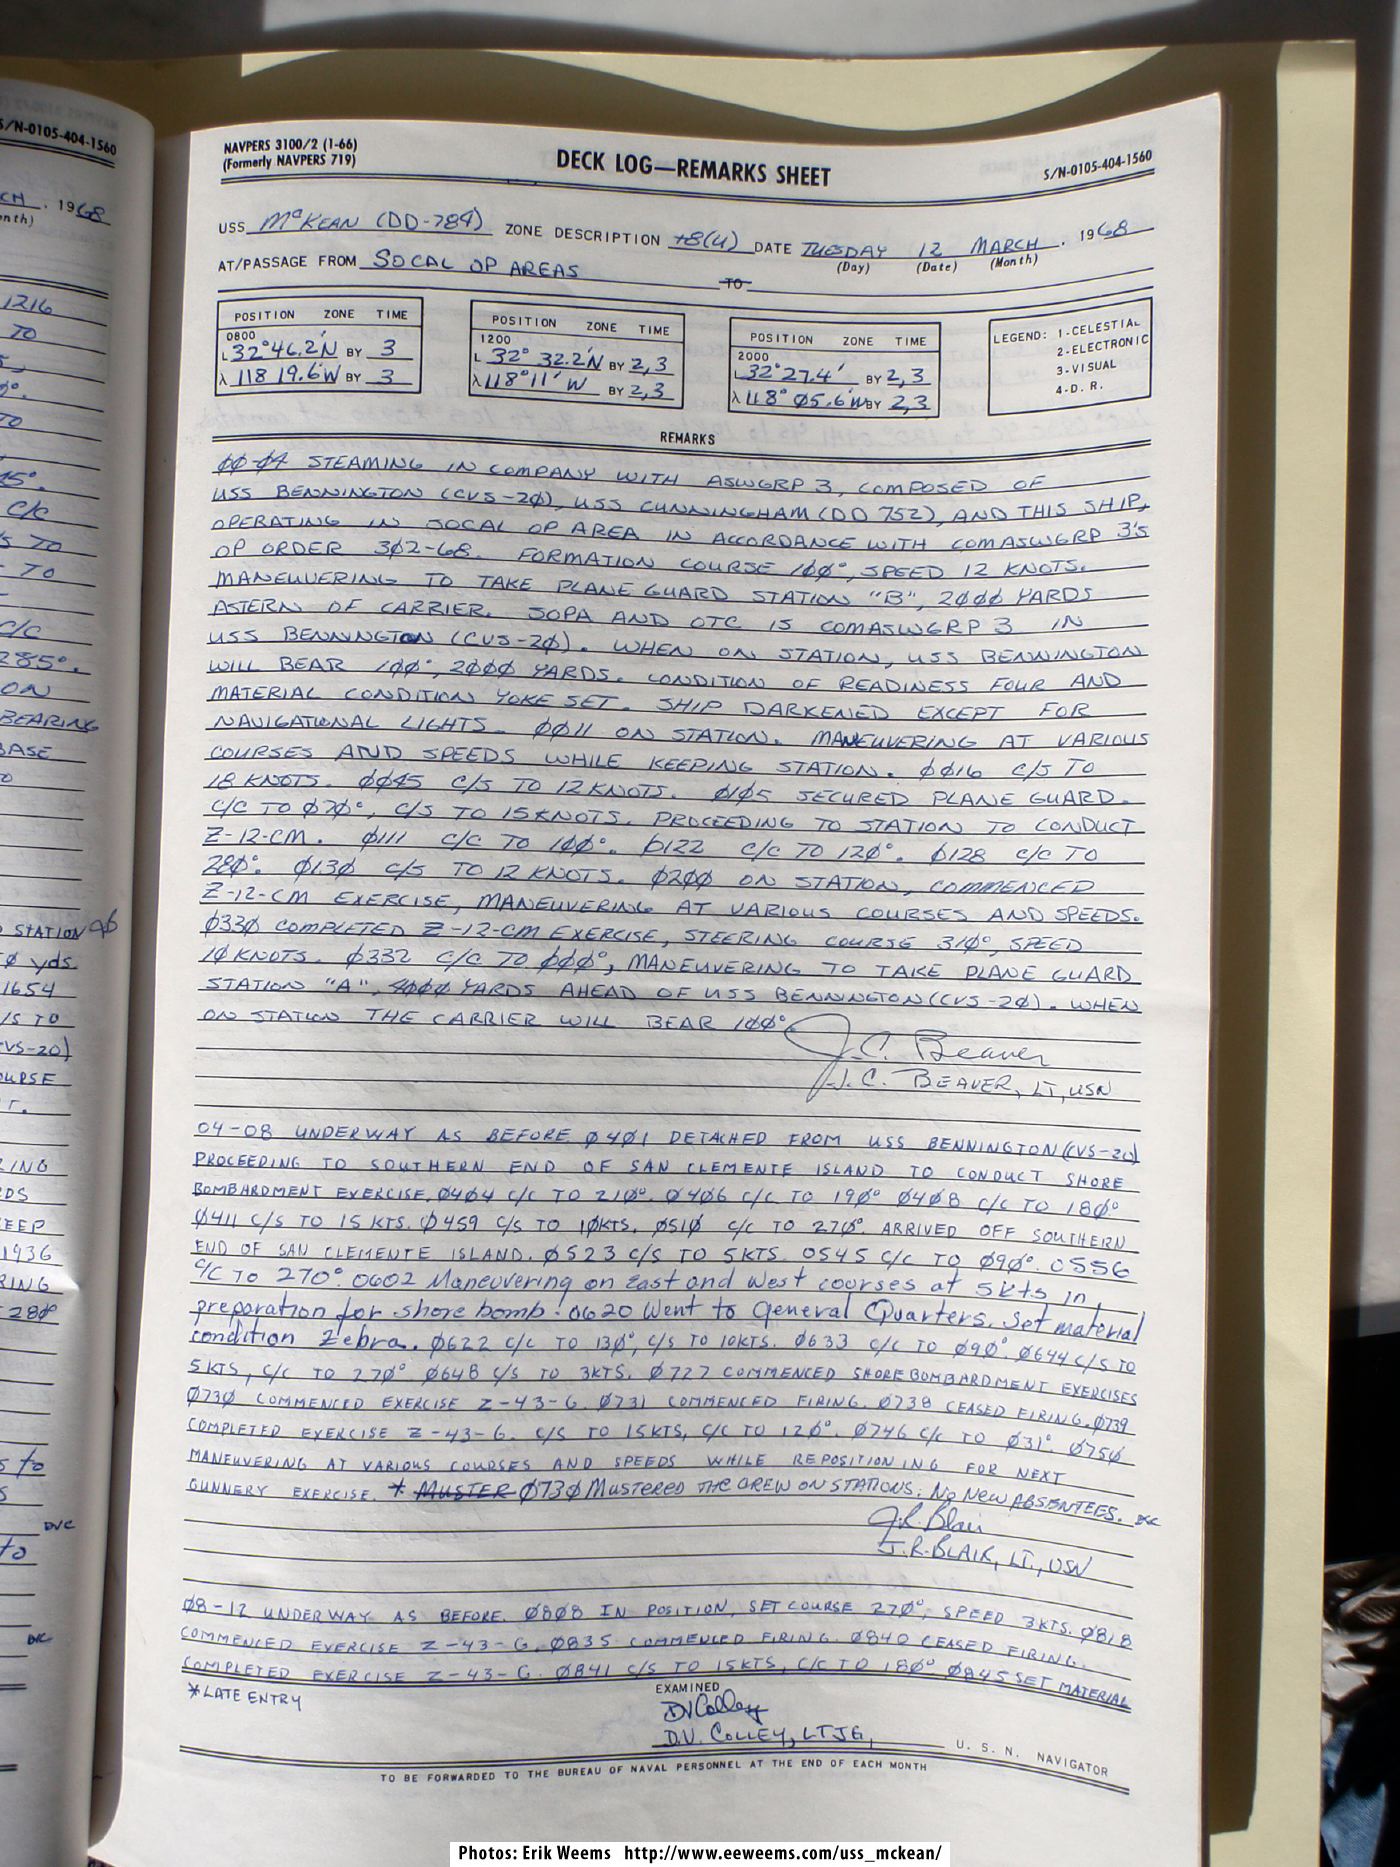 S/N-0105-404-1560
CH, 1968
nth)
1216
TO
TO
45°.
C/C
S TO
TO
C/C
285°.
ON
BEARING
BASE
STATION
Ø yds.
1654
/S TO
CVS-20)
OURSE
T.
ING
DS
EEP
1936
RING
28Ø
s to
DVC
to
NAVPERS 3100/2 (1-66)
(Formerly NAVPERS 719)
DECK LOG—REMARKS SHEET
S/N-0105-404-1560
USS McKEAN (DD-784) ZONE DESCRIPTION +8(U) DATE TUESDAY 12 MARCH, 1968
(Day) (Date) (Month)
AT/PASSAGE FROM SOCAL OP AREAS TO
POSITION ZONE TIME
0800
L 32°46.2'N BY 3
λ 118 19.6'W BY 3
POSITION ZONE TIME
1200
L 32° 32.2'N BY 2,3
λ 118°11'W BY 2,3
POSITION ZONE TIME
2000
L 32°27.4' BY 2,3
λ 118° Ø5.6'W BY 2,3
LEGEND: 1-CELESTIAL
2-ELECTRONIC
3-VISUAL
4-D. R.
REMARKS
ØØ-Ø4 STEAMING IN COMPANY WITH ASWGRP 3, COMPOSED OF
USS BENNINGTON (CVS-2Ø), USS CUNNINGHAM (DD 752), AND THIS SHIP,
OPERATING IN SOCAL OP AREA IN ACCORDANCE WITH COMASWGRP 3'S
OP ORDER 3Ø2-68. FORMATION COURSE 1ØØ°, SPEED 12 KNOTS.
MANEUVERING TO TAKE PLANE GUARD STATION "B", 2ØØØ YARDS
ASTERN OF CARRIER. SOPA AND OTC IS COMASWGRP 3 IN
USS BENNINGTON (CVS-2Ø). WHEN ON STATION, USS BENNINGTON
WILL BEAR 1ØØ°, 2ØØØ YARDS. CONDITION OF READINESS FOUR AND
MATERIAL CONDITION YOKE SET. SHIP DARKENED EXCEPT FOR
NAVIGATIONAL LIGHTS. ØØ11 ON STATION. MANEUVERING AT VARIOUS
COURSES AND SPEEDS WHILE KEEPING STATION. ØØ16 C/S TO
18 KNOTS. ØØ45 C/S TO 12 KNOTS. Ø1Ø5 SECURED PLANE GUARD.
C/C TO Ø7Ø°, C/S TO 15 KNOTS. PROCEEDING TO STATION TO CONDUCT
Z-12-CM. Ø111 C/C TO 1ØØ°. Ø122 C/C TO 12Ø°. Ø128 C/C TO
28Ø°. Ø13Ø C/S TO 12 KNOTS. Ø2ØØ ON STATION, COMMENCED
Z-12-CM EXERCISE, MANEUVERING AT VARIOUS COURSES AND SPEEDS.
Ø33Ø COMPLETED Z-12-CM EXERCISE, STEERING COURSE 31Ø°, SPEED
1Ø KNOTS. Ø332 C/C TO ØØØ°, MANEUVERING TO TAKE PLANE GUARD
STATION "A", 4ØØØ YARDS AHEAD OF USS BENNINGTON (CVS-2Ø). WHEN
ON STATION THE CARRIER WILL BEAR 1ØØ°.
J.C. Beaver
J.C. BEAVER, LT, USN
04-08 UNDERWAY AS BEFORE Ø4Ø1 DETACHED FROM USS BENNINGTON (CVS-20)
PROCEEDING TO SOUTHERN END OF SAN CLEMENTE ISLAND TO CONDUCT SHORE
BOMBARDMENT EXERCISE. Ø4Ø4 C/C TO 21Ø°. Ø4Ø6 C/C TO 19Ø° Ø4Ø8 C/C TO 18Ø°
Ø411 C/S TO 15 KTS. Ø459 C/S TO 1ØKTS. Ø51Ø C/C TO 27Ø°. ARRIVED OFF SOUTHERN
END OF SAN CLEMENTE ISLAND. Ø523 C/S TO 5KTS. 0545 C/C TO Ø9Ø°. 0556
C/C TO 270°. 0602 Maneuvering on East and West courses at 5 kts in
preparation for shore bomb. 0620 Went to General Quarters. Set material
condition Zebra. Ø622 C/C TO 13Ø°, C/S TO 10KTS. Ø633 C/C TO Ø9Ø° Ø644 C/S TO
5KTS, C/C TO 27Ø° Ø648 C/S TO 3KTS. Ø727 COMMENCED SHORE BOMBARDMENT EXERCISES
Ø73Ø COMMENCED EXERCISE Z-43-G. Ø731 COMMENCED FIRING. Ø738 CEASED FIRING. Ø739
COMPLETED EXERCISE Z-43-G. C/S TO 15KTS, C/C TO 12Ø°. Ø746 C/C TO Ø31°. Ø75Ø
MANEUVERING AT VARIOUS COURSES AND SPEEDS WHILE REPOSITIONING FOR NEXT
GUNNERY EXERCISE. * MUSTER Ø73Ø MUSTERED THE CREW ON STATIONS: NO NEW ABSENTEES. DVC
J.R. Blair
J.R. BLAIR, LT., USN
Ø8-12 UNDERWAY AS BEFORE. Ø8Ø8 IN POSITION, SET COURSE 27Ø°, SPEED 3KTS. Ø818
COMMENCED EXERCISE Z-43-G. Ø835 COMMENCED FIRING. Ø840 CEASED FIRING.
COMPLETED EXERCISE Z-43-G. Ø841 C/S TO 15KTS, C/C TO 18Ø° Ø845 SET MATERIAL
*LATE ENTRY
EXAMINED
DVColley
D.V. COLLEY, LTJG, U. S. N. NAVIGATOR
TO BE FORWARDED TO THE BUREAU OF NAVAL PERSONNEL AT THE END OF EACH MONTH
Photos: Erik Weems http://www.eeweems.com/uss_mckean/